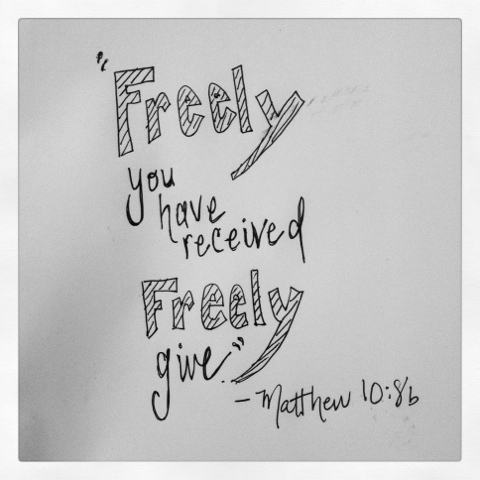 "Freely
you
have
received
Freely
give"
- Matthew 10:8b